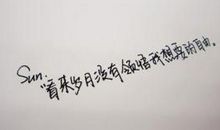 Sun:
“看来岁月没有领悟我想要的自由。